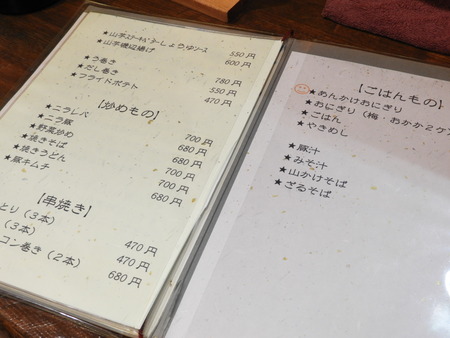 ★山芋ｽﾃｰｷﾊﾞﾀｰしょうゆｿｰｽ 550円
★山芋磯辺揚げ 600円
★う巻き 780円
★だし巻き 550円
★フライドポテト 470円
【炒めもの】
★ニラレバ 700円
★ニラ豚 680円
★野菜炒め 680円
★焼きそば 700円
★焼きうどん 700円
★豚キムチ 680円
【串焼き】
とり（3本） 470円
（3本） 470円
コン巻き（2本） 680円
【ごはんもの】
★あんかけおにぎり
★おにぎり（梅・おかか２ケ
★ごはん
★やきめし
★豚汁
★みそ汁
★山かけそば
★ざるそば